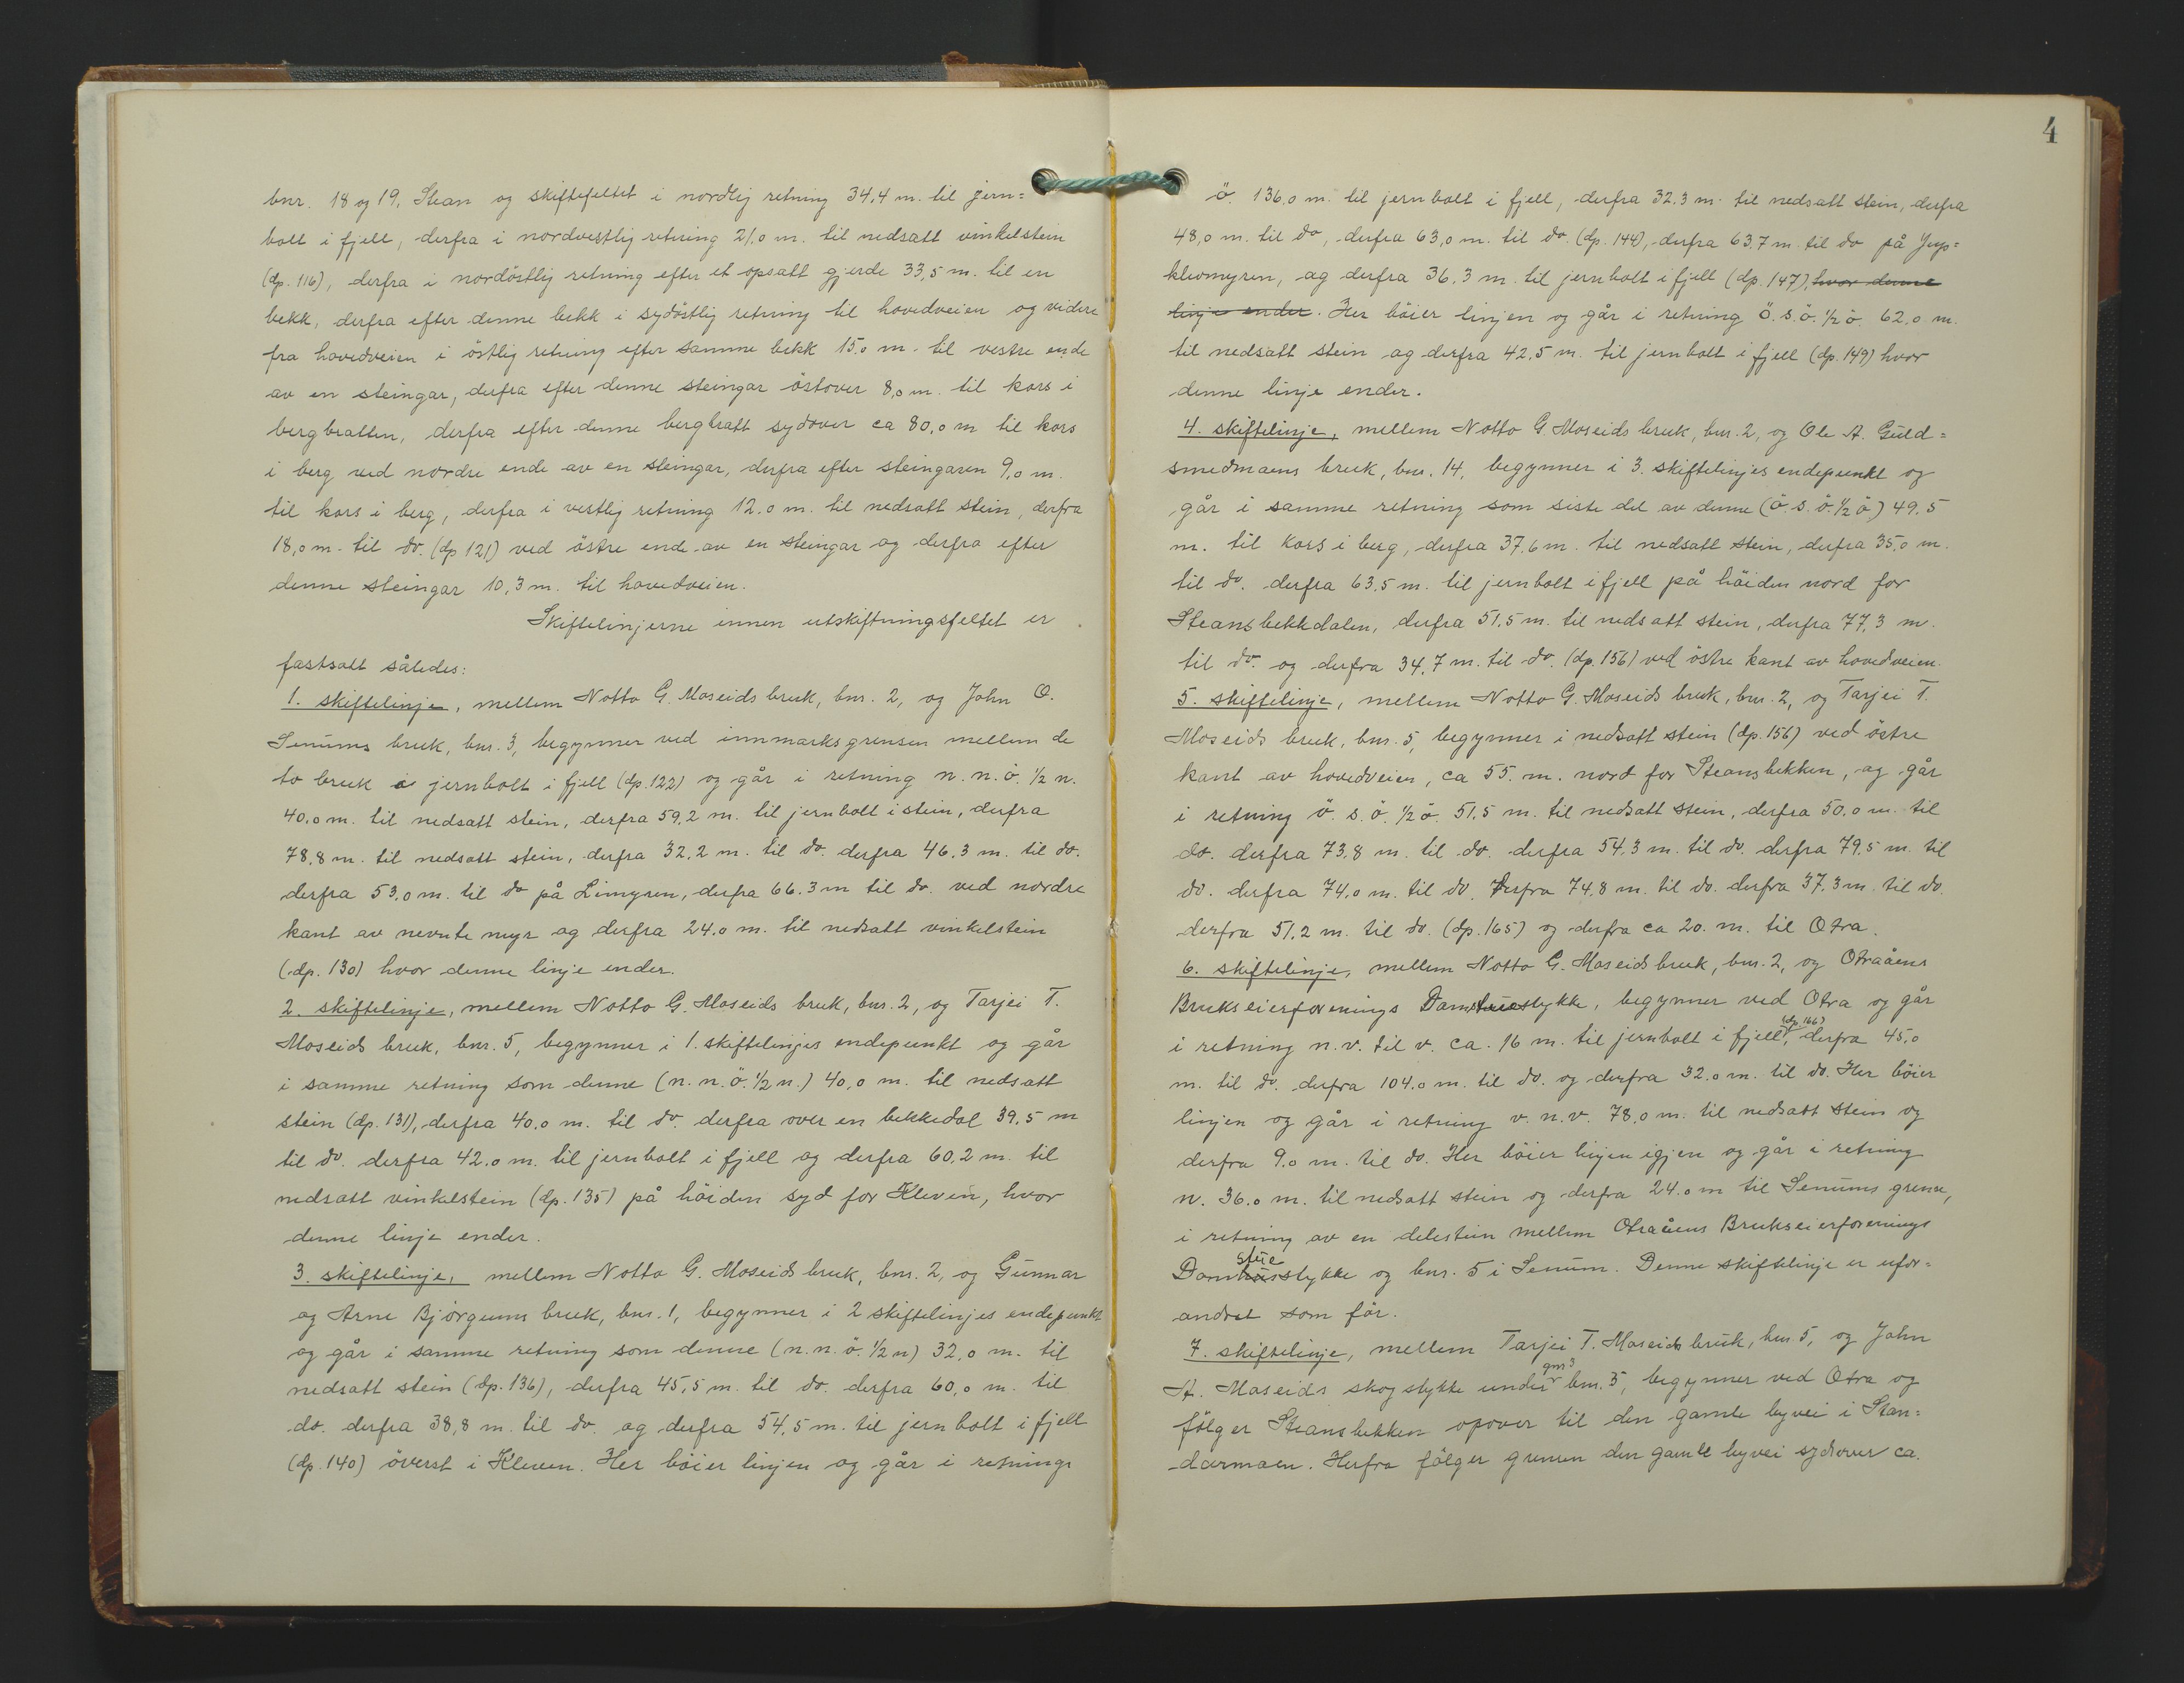 bnr. 18 og 19, Stean og skiftefeltet i nordlig retning 34,4 m. til jern=
bolt i fjell, derfra i nordvestlig retning 21,0 m. til nedsatt vinkelstein
(dp. 116), derfra i nordöstlig retning efter et opsatt gjerde 33,5 m. til en
bekk, derfra efter denne bekk i sydöstlig retning til hovedveien og videre
fra hovedveien i östlig retning efter samme bekk 15,0 m. til vestre ende
av en steingar, derfra efter denne steingar östover 8,0 m. til kors i
bergbratten, derfra efter denne bergbratt sydover ca 80,0 m til kors
i berg ved nordre ende av en steingar, derfra efter steingaren 9,0 m.
til kors i berg, derfra i vestlig retning 12.0 m. til nedsatt stein, derfra
18,0 m. til do. (dp 121) ved östre ende av en steingar og derfra efter
denne steingar 10,3 m. til hovedveien.
Skiftelinjerne innen utskiftningsfeltet er
fastsatt således:
1. skiftelinje, mellem Notto G. Moseids bruk, bnr. 2, og John O.
Senums bruk, bnr. 3, begynner ved innmarksgrensen mellem de
to bruk i jernbolt i fjell (dp. 122) og går i retning n. n. ö. 1/2 n.
40,0 m. til nedsatt stein, derfra 59,2 m. til jernbolt i stein, derfra
78,8 m. til nedsatt stein, derfra 32,2 m. til do. derfra 46.3 m. til do.
derfra 53,0 m. til do på Limyren, derfra 66.3 m til do. ved nordre
kant av nevnte myr og derfra 24.0 m. til nedsatt vinkelstein
(dp. 130) hvor denne linje ender.
2. skiftelinje, mellem Notto G. Moseids bruk, bnr. 2, og Tarjei T.
Moseids bruk, bnr. 5, begynner i 1. skiftelinjes endepunkt og går
i samme retning som denne (n. n. ö. 1/2 n.) 40,0 m. til nedsatt
stein (dp. 131), derfra 40.0 m. til do. derfra over en bekkedal 39,5 m
til do. derfra 42.0 m. til jernbolt i fjell og derfra 60,2 m. til
nedsatt vinkelstein (dp. 135) på höiden syd for Kleven, hvor
denne linje ender.
3. skiftelinje, mellem Notto G. Moseids bruk, bnr. 2, og Gunnar
og Arne Björgums bruk, bnr. 1, begynner i 2 skiftelinjes endepunkt
og går i samme retning som denne (n. n. ö. 1/2 n) 32,0 m. til
nedsatt stein (dp. 136), derfra 45,5 m. til do. derfra 60,0 m. til
do. derfra 38,8 m. til do. og derfra 54,5 m. til jernbolt i fjell
(dp. 140) överst i Kleven. Her böier linjen og går i retning
4
ö. 136,0 m. til jernbolt i fjell, derfra 32.3 m. til nedsatt stein, derfra
48,0 m. til do, derfra 63,0 m. til do. (dp. 144), derfra 63,7 m. til do på
kleomyren, og derfra 36,3 m. til jernbolt i fjell (dp. 147), hvor denne
linje ender. Her böier linjen og går i retning Ö. s. ö. 1/2 ö. 62,0 m.
til nedsatt stein og derfra 42,5 m. til jernbolt i fjell (dp. 149) hvor
denne linje ender.
4. skiftelinje, mellem Notto G. Moseids bruk, bnr. 2, og Ole A. Guld=
smedmoens bruk, bnr. 14, begynner i 3. skiftelinjes endepunkt og
går i samme retning som siste del av denne (ö. s. ö. 1/2 ö) 49,5
m. til kors i berg, derfra 37,6 m. til nedsatt stein, derfra 35,0 m.
til do. derfra 63,5 m. til jernbolt i fjell på höiden nord for
Steansbekkdalen, derfra 51,5 m. til nedsatt stein, derfra 77,3 m.
til do. og derfra 34,7 m. til do. (dp. 156) ved östre kant av hovedveien.
5. skiftelinje, mellem Notto G. Moseids bruk, bnr. 2, og Tarjei T.
Moseids bruk, bnr. 5, begynner i nedsatt stein (dp. 156) ved östre
kant av hovedveien, ca 55. m. nord for Steansbekken, og går
i retning ö. s. ö. 1/2 ö. 51,5 m. til nedsatt stein, derfra 50,0 m. til
do. derfra 73,8 m. til do. derfra 54,3 m. til do. derfra 79,5 m. til
do. derfra 74,0 m. til do. derfra 74,8 m. til do. derfra 37,3 m. til do.
derfra 51,2 m. til do. (dp. 165) og derfra ca 20. m. til Otra.
6. skiftelinje, mellem Notto G. Moseids bruk, bnr. 2, og Otraåens
Brukseierforenings Damstuestykke, begynner ved Otra og går
i retning n. v. til v. ca. 16 m. til jernbolt i fjell, (dp. 166) derfra 45,0
m. til do. derfra 104.0 m. til do. og derfra 32.0 m. til do. Her böier
linjen og går i retning v. n. v. 78,0 m. til nedsatt stein og
derfra 9.0 m. til do. Her böier linjen igjen og går i retning
n. 36.0 m. til nedsatt stein og derfra 24.0 m til Senums grense,
i retning av en delestein mellem Otraåens Brukseierforenings
stue
Damhusstykke og bnr. 5 i Senum. Denne skiftelinje er ufor=
andret som för.
7. skiftelinje, mellem Tarjei T. Moseids bruk, bnr. 5, og John
A. Moseids skogstykke under gnr 3 bnr. 5, begynner ved Otra og
fölger Steansbekken opover til den gamle byvei i Stan=
darmoen. Herfra fölger grensen den gamle byvei sydover ca.